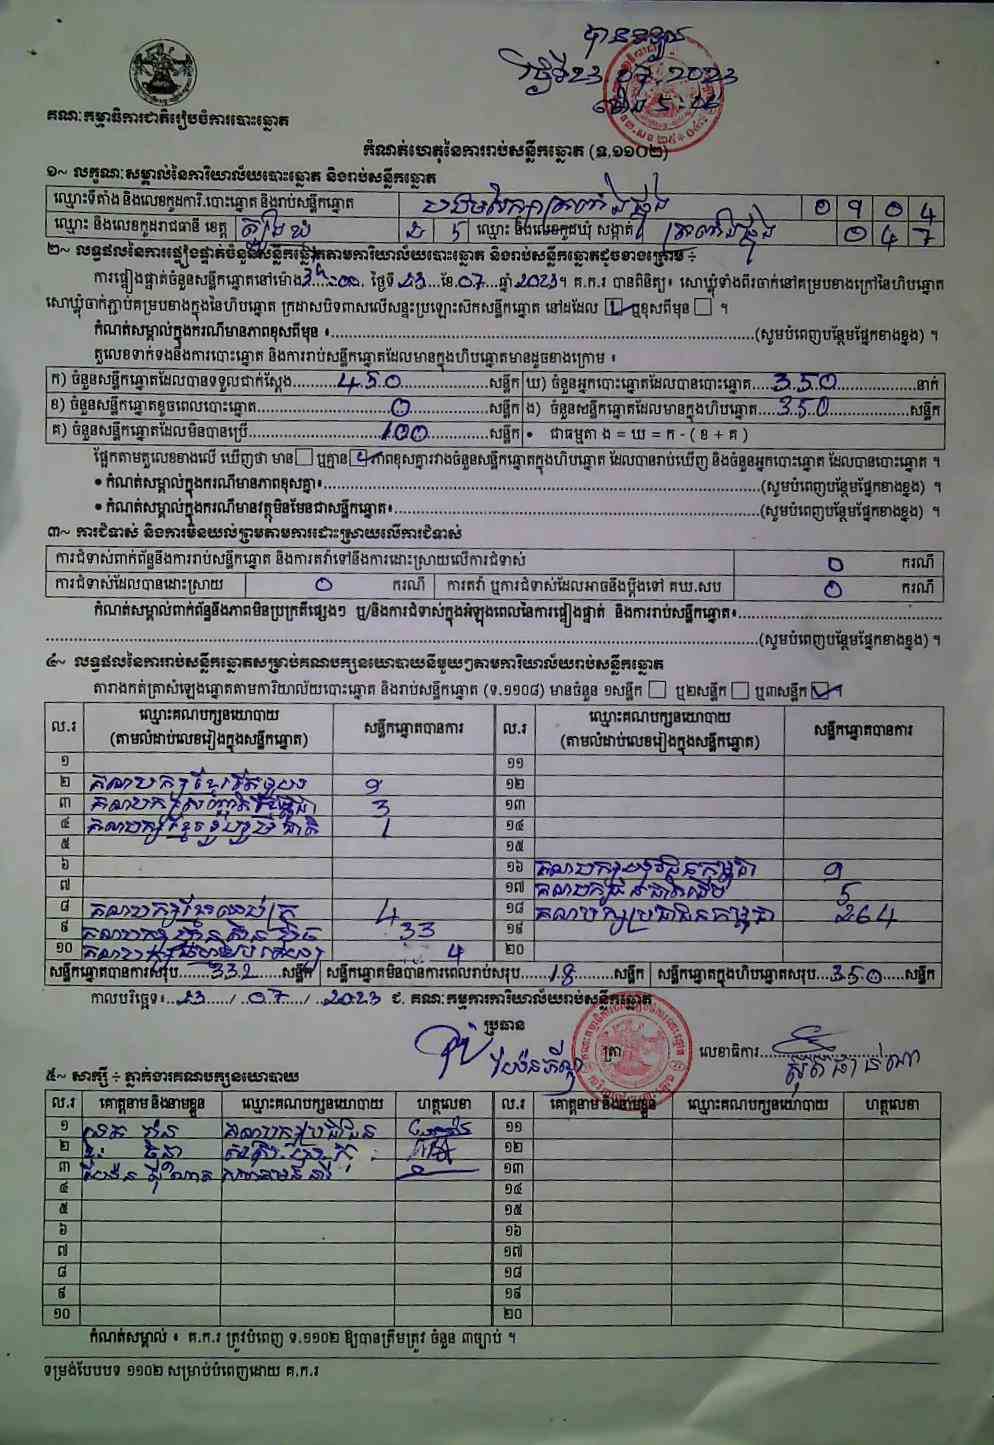 បានទទួល
ថ្ងៃទី23.07.2023
ម៉ោង 5:
គណៈកម្មាធិការជាតិរៀបចំការបោះឆ្នោត
កំណត់ហេតុនៃការរាប់សន្លឹកឆ្នោត (ទ.១១០២)
១~ លក្ខណៈសម្គាល់នៃការិយាល័យបោះឆ្នោត និងរាប់សន្លឹកឆ្នោត
ឈ្មោះទីតាំង និងលេខកូដការិ.បោះឆ្នោត និងរាប់សន្លឹកឆ្នោត 0 9 0 4
ឈ្មោះ និងលេខកូដរាជធានី ខេត្ត ត្បូងឃ្មុំ 2 5 ឈ្មោះ និងលេខកូដឃុំ សង្កាត់ 0 4 7
២~ លទ្ធផលនៃការផ្ទៀងផ្ទាត់ចំនួនសន្លឹកឆ្នោតតាមការិយាល័យបោះឆ្នោត និងរាប់សន្លឹកឆ្នោតដូចខាងក្រោម ៖
ការផ្ទៀងផ្ទាត់ចំនួនសន្លឹកឆ្នោតនៅម៉ោង 3:00 ថ្ងៃទី 23 ខែ 07 ឆ្នាំ 2023។ គ.ក.រ បានពិនិត្យ៖ សោឃ្មុំទាំងពីរចាក់នៅគម្របខាងក្រៅនៃហិបឆ្នោត
សោឃ្មុំចាក់ភ្ជាប់គម្របខាងក្នុងនៃហិបឆ្នោត ក្រដាសបិទពាសលើសន្ទះប្រឡោះស៊កសន្លឹកឆ្នោត នៅដដែល ☑ ឬខុសពីមុន ☐ ។
កំណត់សម្គាល់ក្នុងករណីមានភាពខុសពីមុន ៖ (សូមបំពេញបន្ថែមផ្នែកខាងខ្នង) ។
តួលេខទាក់ទងនឹងការបោះឆ្នោត និងការរាប់សន្លឹកឆ្នោតដែលមានក្នុងហិបឆ្នោតមានដូចខាងក្រោម ៖
ក) ចំនួនសន្លឹកឆ្នោតដែលបានទទួលជាក់ស្តែង 450 សន្លឹក ឃ) ចំនួនអ្នកបោះឆ្នោតដែលបានបោះឆ្នោត 350 នាក់
ខ) ចំនួនសន្លឹកឆ្នោតខូចពេលបោះឆ្នោត 0 សន្លឹក ង) ចំនួនសន្លឹកឆ្នោតដែលមានក្នុងហិបឆ្នោត 350 សន្លឹក
គ) ចំនួនសន្លឹកឆ្នោតដែលមិនបានប្រើ 100 សន្លឹក • ជាធម្មតា ង = ឃ = ក - ( ខ + គ )
ផ្អែកតាមតួលេខខាងលើ ឃើញថា មាន ☐ ឬគ្មាន ☑ ភាពខុសគ្នារវាងចំនួនសន្លឹកឆ្នោតក្នុងហិបឆ្នោត ដែលបានរាប់ឃើញ និងចំនួនអ្នកបោះឆ្នោត ដែលបានបោះឆ្នោត ។
• កំណត់សម្គាល់ក្នុងករណីមានភាពខុសគ្នា៖ (សូមបំពេញបន្ថែមផ្នែកខាងខ្នង) ។
• កំណត់សម្គាល់ក្នុងករណីមានវត្ថុមិនមែនជាសន្លឹកឆ្នោត៖ (សូមបំពេញបន្ថែមផ្នែកខាងខ្នង) ។
៣~ ការជំទាស់ និងការមិនយល់ព្រមតាមការដោះស្រាយលើការជំទាស់
ការជំទាស់ពាក់ព័ន្ធនឹងការរាប់សន្លឹកឆ្នោត និងការតវ៉ាទៅនឹងការដោះស្រាយលើការជំទាស់ 0 ករណី
ការជំទាស់ដែលបានដោះស្រាយ 0 ករណី ការតវ៉ា ឬការជំទាស់ដែលអាចនឹងប្តឹងទៅ គឃ.សប 0 ករណី
កំណត់សម្គាល់ពាក់ព័ន្ធនឹងភាពមិនប្រក្រតីផ្សេងៗ ឬ/និងការជំទាស់ក្នុងអំឡុងពេលនៃការផ្ទៀងផ្ទាត់ និងការរាប់សន្លឹកឆ្នោត៖
(សូមបំពេញបន្ថែមផ្នែកខាងខ្នង) ។
៤~ លទ្ធផលនៃការរាប់សន្លឹកឆ្នោតសម្រាប់គណបក្សនយោបាយនីមួយៗតាមការិយាល័យរាប់សន្លឹកឆ្នោត
តារាងកត់ត្រាសំឡេងឆ្នោតតាមការិយាល័យបោះឆ្នោត និងរាប់សន្លឹកឆ្នោត (ទ.១១០៨) មានចំនួន ១សន្លឹក ☐ ឬ២សន្លឹក ☐ ឬ៣សន្លឹក ☑ ។
ល.រ ឈ្មោះគណបក្សនយោបាយ (តាមលំដាប់លេខរៀងក្នុងសន្លឹកឆ្នោត) សន្លឹកឆ្នោតបានការ ល.រ ឈ្មោះគណបក្សនយោបាយ (តាមលំដាប់លេខរៀងក្នុងសន្លឹកឆ្នោត) សន្លឹកឆ្នោតបានការ
១ ១១
២ គណបក្សខ្មែរ 9 ១២
៣ គណបក្ស 3 ១៣
៤ គណបក្សខ្មែររួបរួមជាតិ 1 ១៤
៥ ១៥
៦ ១៦ គណបក្សយុវជនកម្ពុជា 9
៧ ១៧ គណបក្ស 5
៨ គណបក្សខ្មែរឈប់ក្រ 4 ១៨ គណបក្សប្រជាជនកម្ពុជា 264
៩ គណបក្សហ៊្វុនស៊ិនប៉ិច 33 ១៩
១០ គណបក្ស 4 ២០
សន្លឹកឆ្នោតបានការសរុប 332 សន្លឹក សន្លឹកឆ្នោតមិនបានការពេលរាប់សរុប 18 សន្លឹក សន្លឹកឆ្នោតក្នុងហិបឆ្នោតសរុប 350 សន្លឹក
កាលបរិច្ឆេទ៖ 23 / 07 / 2023 ជ. គណៈកម្មការការិយាល័យរាប់សន្លឹកឆ្នោត
ប្រធាន
ត្រា លេខាធិការ
៥~ សាក្សី ÷ ភ្នាក់ងារគណបក្សនយោបាយ
ល.រ គោត្តនាម និងនាមខ្លួន ឈ្មោះគណបក្សនយោបាយ ហត្ថលេខា ល.រ គោត្តនាម និងនាមខ្លួន ឈ្មោះគណបក្សនយោបាយ ហត្ថលេខា
១ គណបក្សប្រជាជន ១១
២ ១២
៣ ១៣
៤ ១៤
៥ ១៥
៦ ១៦
៧ ១៧
៨ ១៨
៩ ១៩
១០ ២០
កំណត់សម្គាល់ ៖ គ.ក.រ ត្រូវបំពេញ ទ.១១០២ ឱ្យបានត្រឹមត្រូវ ចំនួន ៣ច្បាប់ ។
ទម្រង់បែបបទ ១១០២ សម្រាប់បំពេញដោយ គ.ក.រ